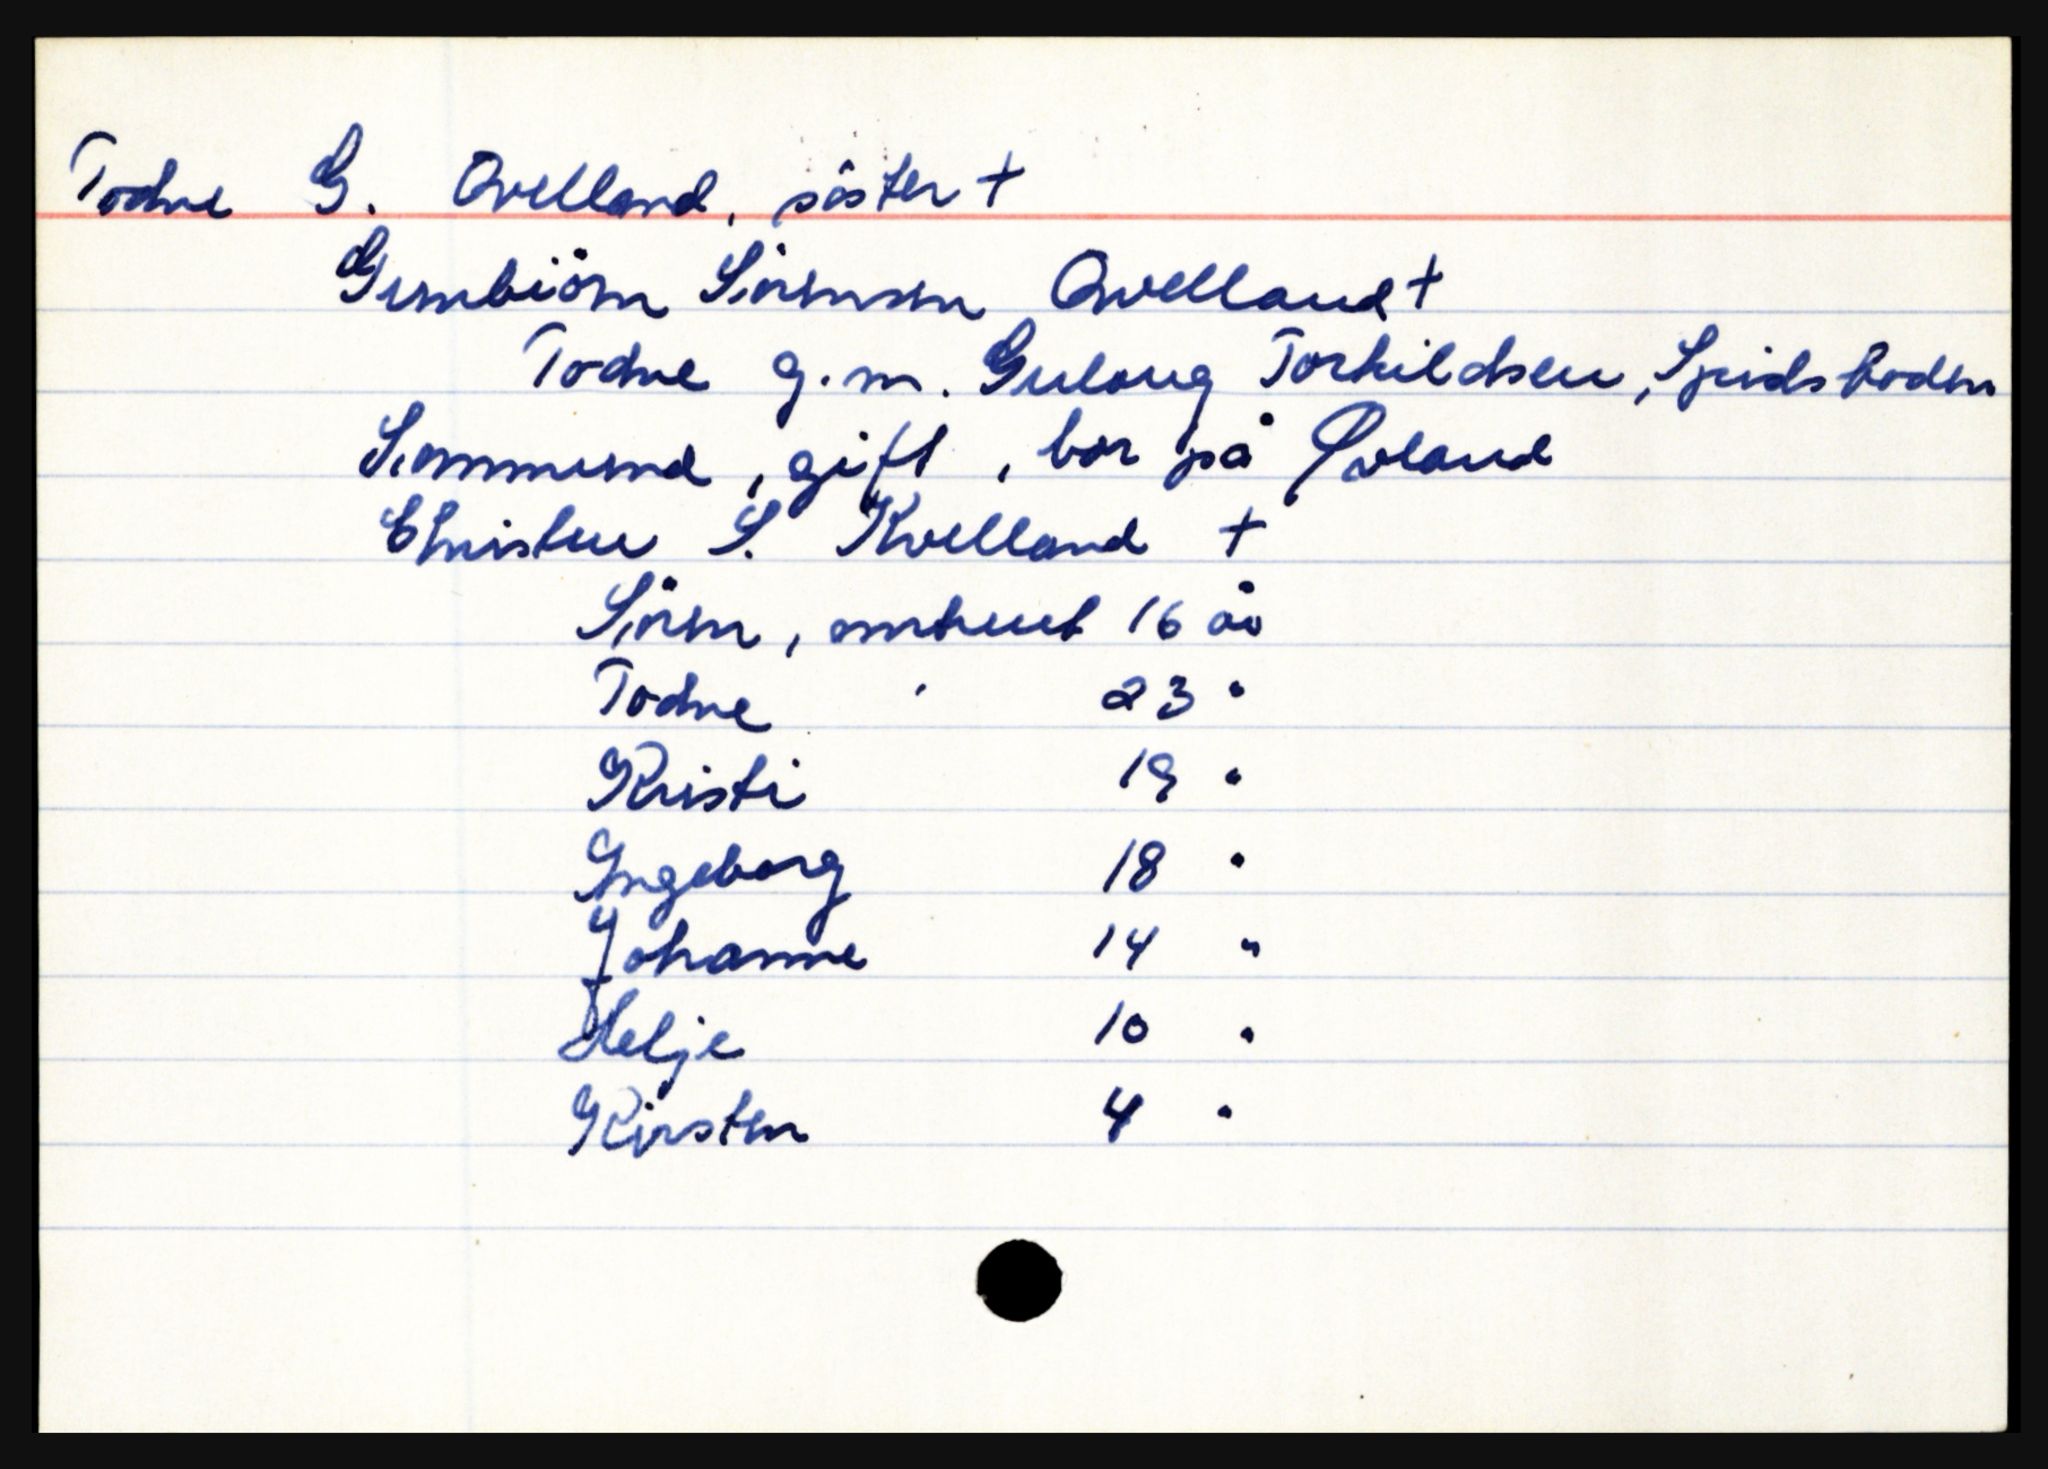 Todne G. Qvelland, söster +
Gunbiörn Sörensen Qvelland +
Todne g.m. Gulaug Torkildsen,
Gommund, gift, bor på Øvland
Christen S. Kvelland +
Sören, omtrent 16 år
Todne 23 "
Kristi 19 "
Ingeborg 18 "
Johanne 14 "
Helje 10 "
Kirsten 4 "